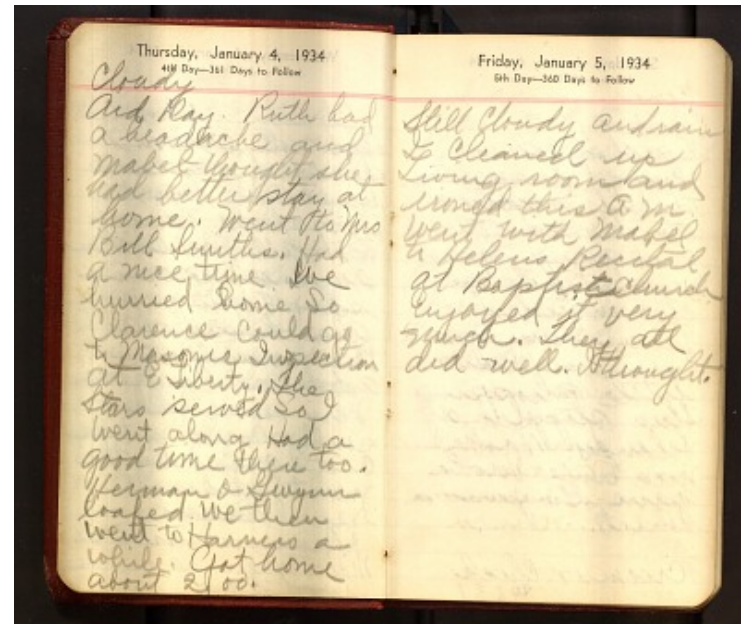 Thursday, January 4, 1934
4th Day—361 Days to Follow
Cloudy
Aid Day. Ruth had
a headache and
Mabel thought she
had better stay at
home. Went to Mrs
Bill Smiths. Had
a nice time We
hurried home So
Clarence Could go
to Masonic Inspection
at E Liberty. The
Stars served So I
went along Had a
good time there too.
Herman & Gwynn
loafed we then
went to Harners a
while. Got home
about 2:00.
Friday, January 5, 1934
5th Day—360 Days to Follow
Still Cloudy and rain
I Cleaned up
Living room and
ironed this A.M.
Went with Mabel
to Helens Recital
at Baptist Church
Enjoyed it very
much. They all
did well. I thought.